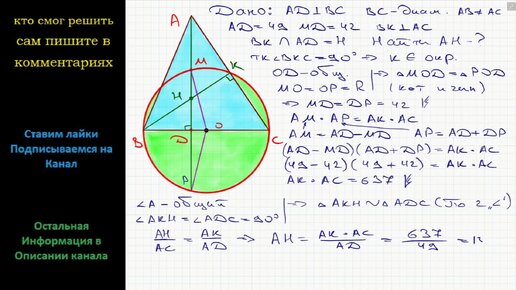 кто смог решить
сам пишите в
комментариях
Ставим лайки
Подписываемся на
Канал
Остальная
Информация в
Описании канала
A
M
K
H
B
D
O
C
P
Дано: AD⊥BC BC-диам. AB≠AC
AD=49 MD=42 BK⊥AC
BK∩AD=H Найти AH-?
т.к ∠BKC=90° ⇒ K∈окр.
OD-общ. | ⇒ △MOD=△POD
MO=OP=R | (кат и гип)
⇒ MD=DP=42
AM·AP=AK·AC
AM=AD-MD AP=AD+DP
(AD-MD)(AD+DP)=AK·AC
(49-42)(49+42)=AK·AC
AK·AC=637
∠A-общий | ⇒ △AKH∽△ADC (по 2∠)
∠AKH=∠ADC=90°
AH/AC = AK/AD ⇒ AH = AK·AC/AD = 637/49 = 1